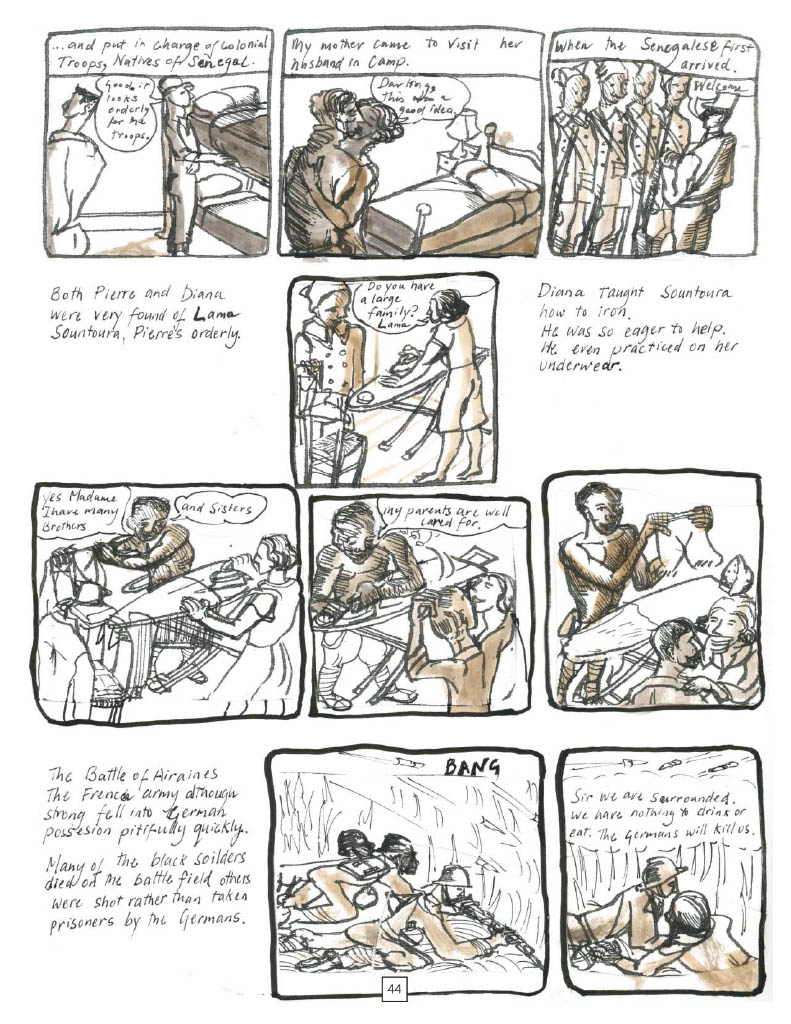 ...and put in charge of Colonial
Troops, Natives of Senegal.
Good, it
looks
orderly
for the
troops.
My mother came to visit her
husband in Camp.
Darling,
this was a
good idea.
When the Senegalese first
arrived.
Welcome
Both Pierre and Diana
were very found of Lama
Sountoura, Pierre's orderly.
Do you have
a large
family?
Lama
Diana Taught Sountoura
how to iron.
He was so eager to help.
He even practiced on her
underwear.
yes Madame
I have many
Brothers
and Sisters
my parents are well
cared for.
The Battle of Airaines
The French army although
strong fell into German
possesion pitifully quickly.
Many of the black soilders
died on the battle field others
were shot rather than taken
prisoners by the Germans.
BANG
Sir we are surrounded.
we have nothing to drink or
eat. The Germans will kill us.
44